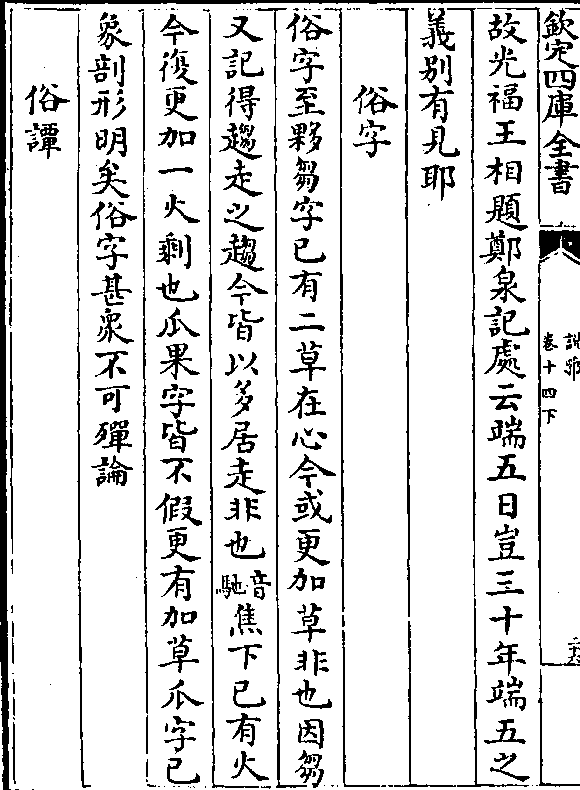 欽定四庫全書
說郛
卷十四下
故光福王相題鄭泉記處云端五日豈三十年端五之
義别有見耶
俗字
俗字至夥芻字已有二草在心今或更加草非也因芻
又記得趨走之趨今皆以多居走非也音馳焦下已有火
今復更加一火剩也瓜果字皆不假更有加草瓜字已
象剖形明矣俗字甚衆不可殫論
俗譚